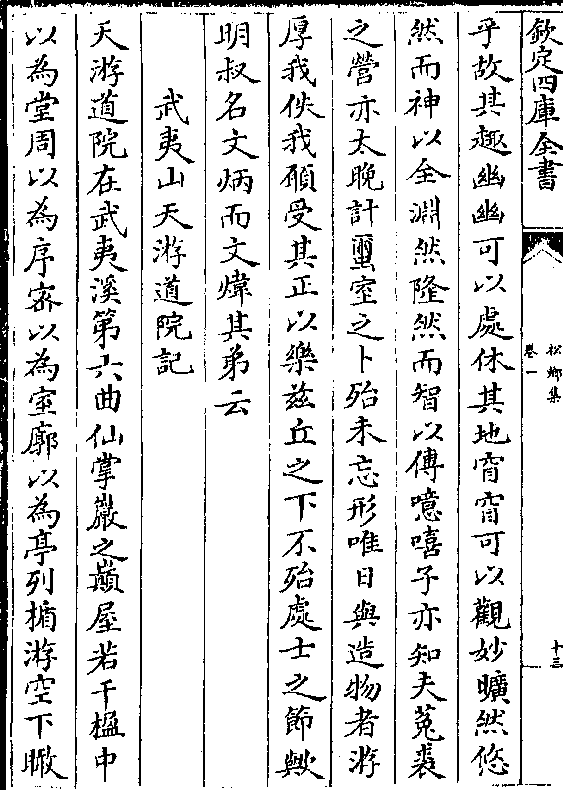 欽定四庫全書
松鄉集
卷一
十三
乎故其趣幽幽可以處休其地窅窅可以觀妙曠然悠
然而神以全淵然隆然而智以傳噫嘻子亦知夫菟裘
之營亦太晚計蠒室之卜殆未忘形唯日與造物者游
厚我佚我頋受其正以樂茲丘之下不殆處士之節歟
明叔名文炳而文煒其弟云
武夷山天游道院記
天游道院在武夷溪第六曲仙掌巖之巔屋若干楹中
以為堂周以為序宻以為室廓以為亭列楯游空下瞰